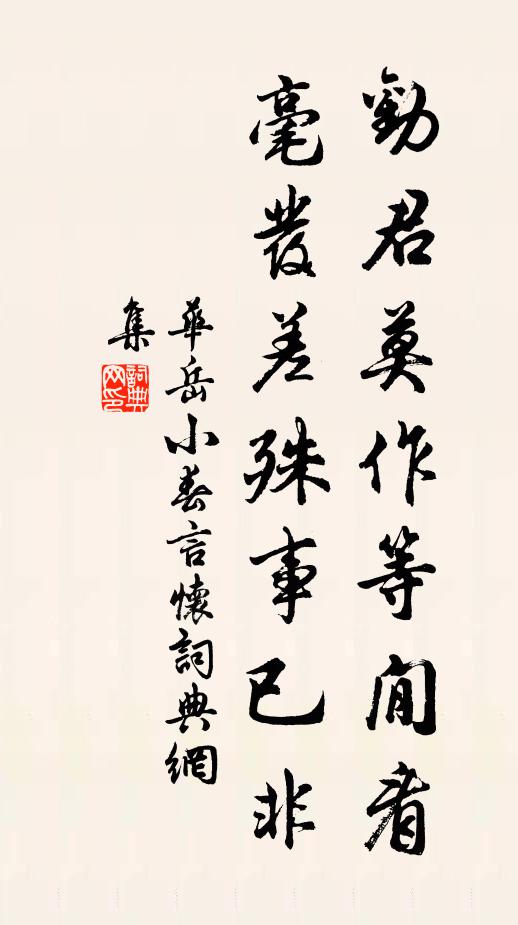 勸君莫作等閒看
毫發差殊事已非
華岳小春言懷詞典網
集
詞典
网印